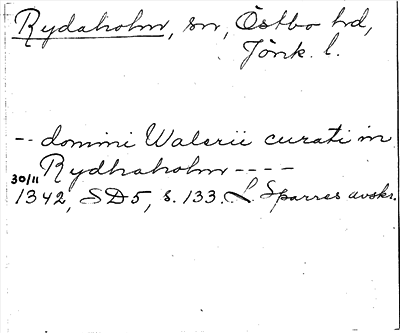 Rydaholm, sn, Östbo hd,
Jönk. l.
-- domini Walerii curati in
Rydhaholm ----
30/11
1342, SD5, s. 133. L. Sparres avskr.